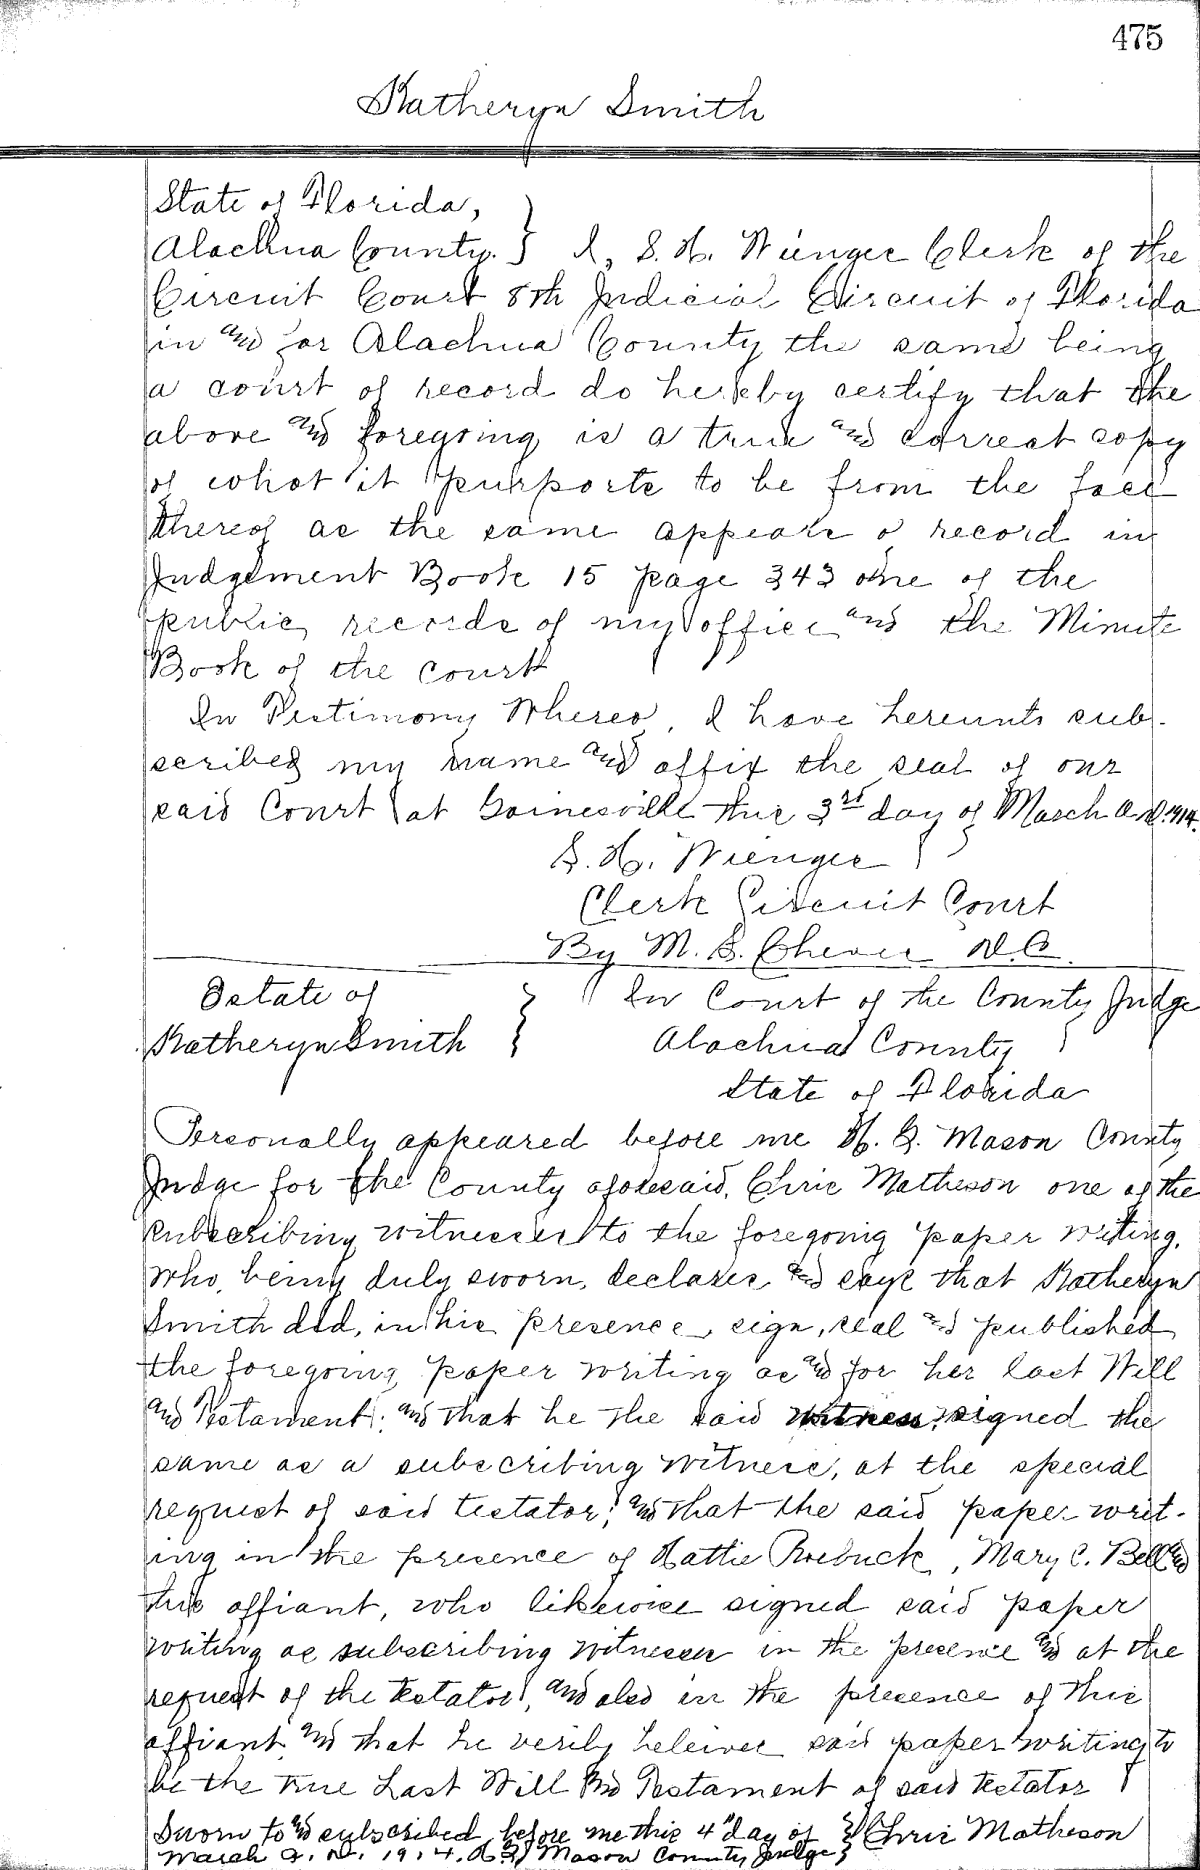 475
Katheryn Smith
State of Florida,
Alachua County. } I, S. H. Wienges Clerk of the
Circuit Court 8th Judicial Circuit of Florida
in and for Alachua County the same being
a court of record do hereby certify that the
above and foregoing is a true and correct copy
of what it purports to be from the face
thereof as the same appears o record in
Judgement Book 15 page 343 one of the
public records of my office and the Minute
Book of the court
In Testimony Whereo, I have hereunto sub-
scribed my name and affix the seal of our
said Court at Gainesville this 3rd day of March A.D. 1914.
S. H. Wienges
Clerk Circuit Court
By M. S. Cheves D.C.
Estate of } In Court of the County Judge
Katheryn Smith Alachua County
State of Florida
Personally appeared before me H. G. Mason County
Judge for the County aforesaid, Chris Matheson one of the
subscribing witnesses to the foregoing paper writing,
who, being duly sworn, declares and says that Katheryn
Smith did, in his presence, sign, seal and published
the foregoing paper writing as and for her last Will
and Testament; and that he the said witness, signed the
same as a subscribing witness, at the special
request of said testator; and that the said paper writ-
ing in the presence of Hattie Roebuck, Mary C. Bell and
this affiant, who likewise signed said paper
writing as subscribing witnesses in the presence and at the
request of the testator, and also in the presence of this
affiant and that he verily beleives said paper writing to
be the true Last Will and Testament of said testator
Sworn to and subscribed before me this 4" day of } Chris Matheson
March A.D. 1914. H. G. Mason County Judge }